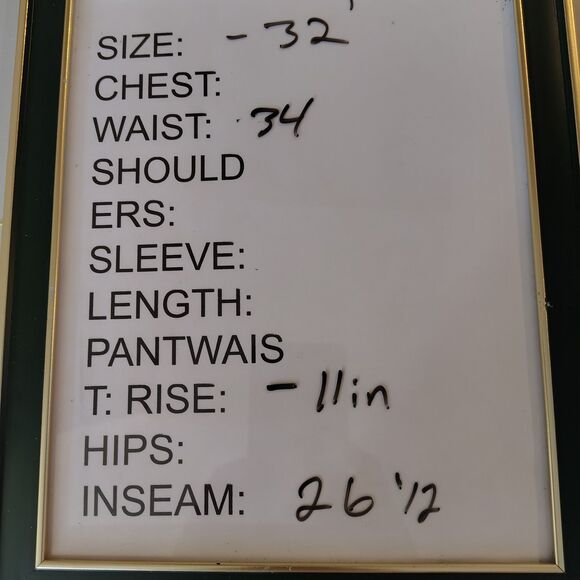 SIZE: - 32
CHEST:
WAIST: 34
SHOULD
ERS:
SLEEVE:
LENGTH:
PANTWAIS
T: RISE: - 11in
HIPS:
INSEAM: 26 1/2